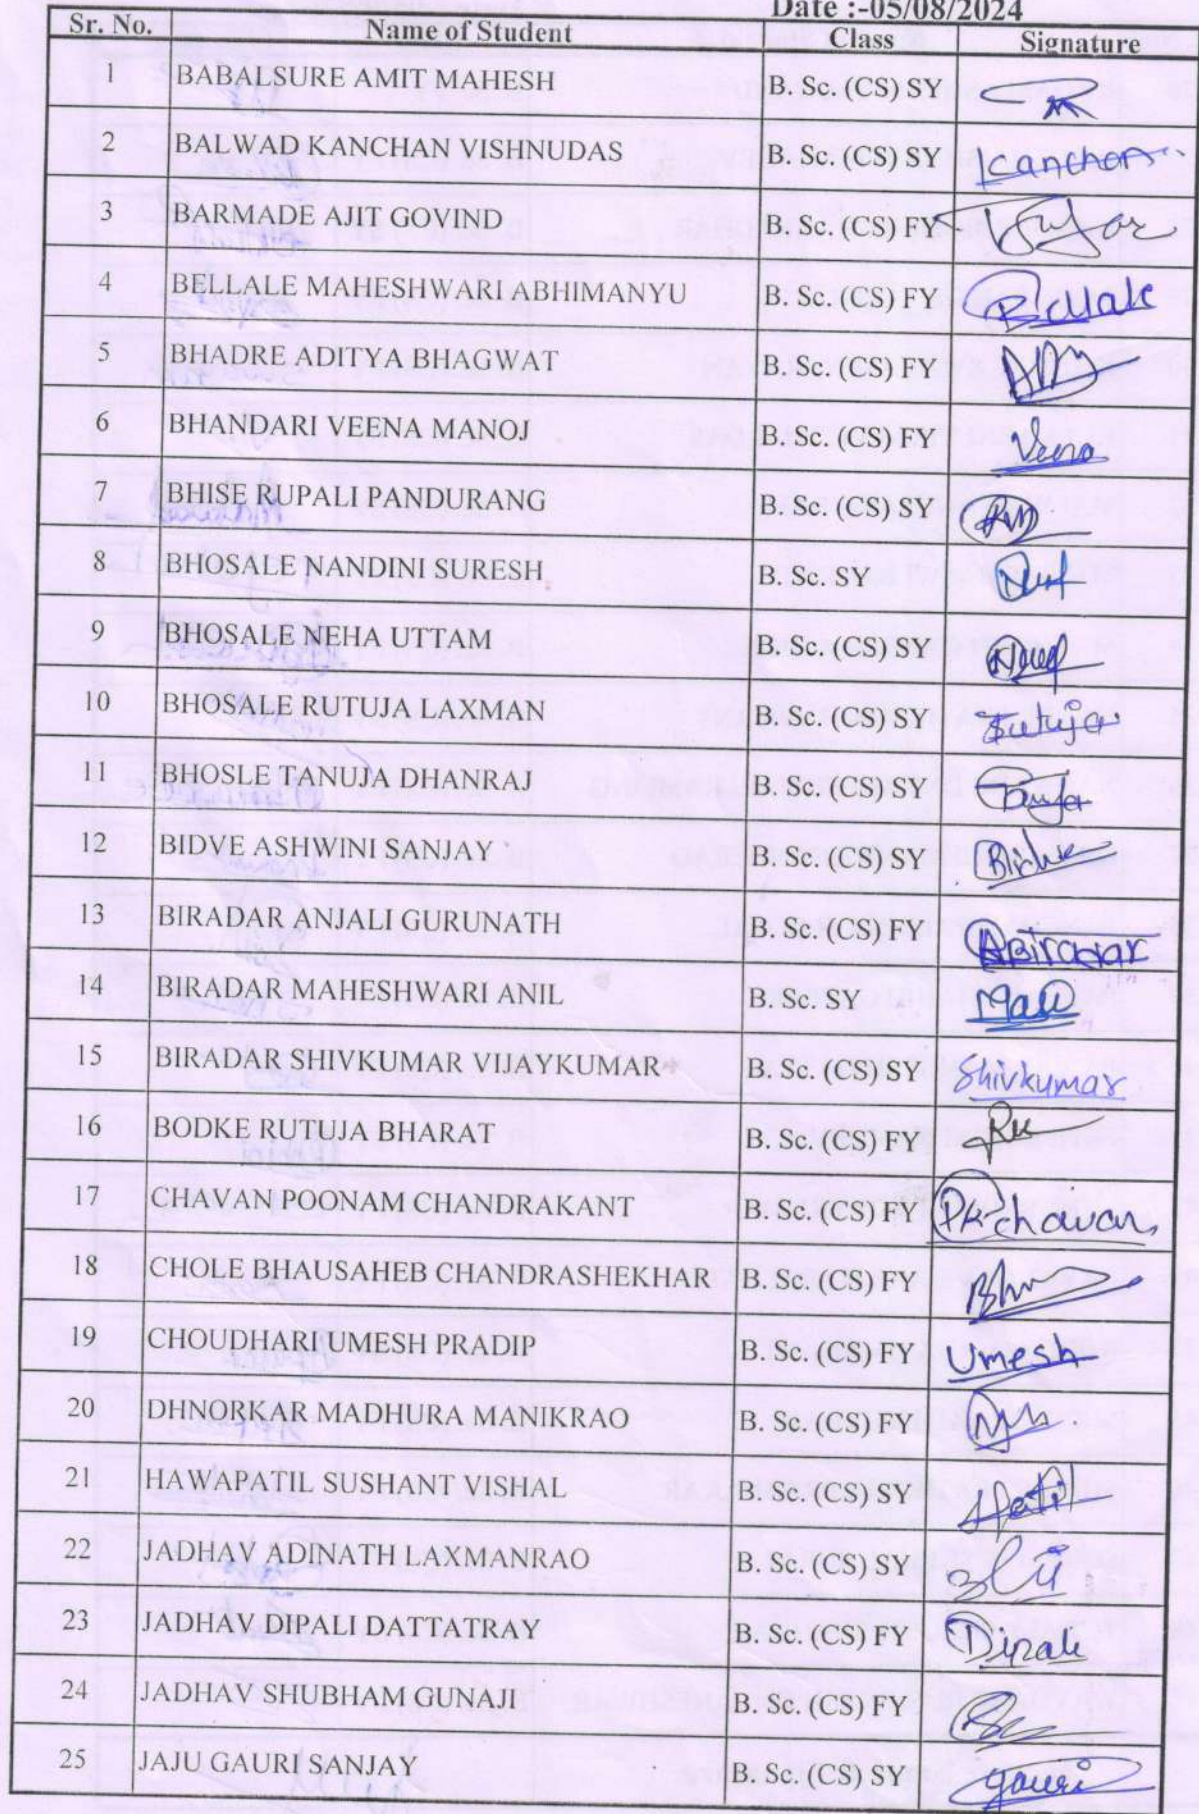 Date :-05/08/2024
Sr. No. Name of Student Class Signature
1 BABALSURE AMIT MAHESH B. Sc. (CS) SY
2 BALWAD KANCHAN VISHNUDAS B. Sc. (CS) SY Kanchan
3 BARMADE AJIT GOVIND B. Sc. (CS) FY
4 BELLALE MAHESHWARI ABHIMANYU B. Sc. (CS) FY Bellale
5 BHADRE ADITYA BHAGWAT B. Sc. (CS) FY
6 BHANDARI VEENA MANOJ B. Sc. (CS) FY Veena
7 BHISE RUPALI PANDURANG B. Sc. (CS) SY
8 BHOSALE NANDINI SURESH B. Sc. SY
9 BHOSALE NEHA UTTAM B. Sc. (CS) SY
10 BHOSALE RUTUJA LAXMAN B. Sc. (CS) SY Rutuja
11 BHOSLE TANUJA DHANRAJ B. Sc. (CS) SY
12 BIDVE ASHWINI SANJAY B. Sc. (CS) SY
13 BIRADAR ANJALI GURUNATH B. Sc. (CS) FY ABiradar
14 BIRADAR MAHESHWARI ANIL B. Sc. SY
15 BIRADAR SHIVKUMAR VIJAYKUMAR B. Sc. (CS) SY Shivkumar
16 BODKE RUTUJA BHARAT B. Sc. (CS) FY
17 CHAVAN POONAM CHANDRAKANT B. Sc. (CS) FY PKchavan
18 CHOLE BHAUSAHEB CHANDRASHEKHAR B. Sc. (CS) FY
19 CHOUDHARI UMESH PRADIP B. Sc. (CS) FY Umesh
20 DHNORKAR MADHURA MANIKRAO B. Sc. (CS) FY
21 HAWAPATIL SUSHANT VISHAL B. Sc. (CS) SY
22 JADHAV ADINATH LAXMANRAO B. Sc. (CS) SY
23 JADHAV DIPALI DATTATRAY B. Sc. (CS) FY Dipali
24 JADHAV SHUBHAM GUNAJI B. Sc. (CS) FY
25 JAJU GAURI SANJAY B. Sc. (CS) SY gauri